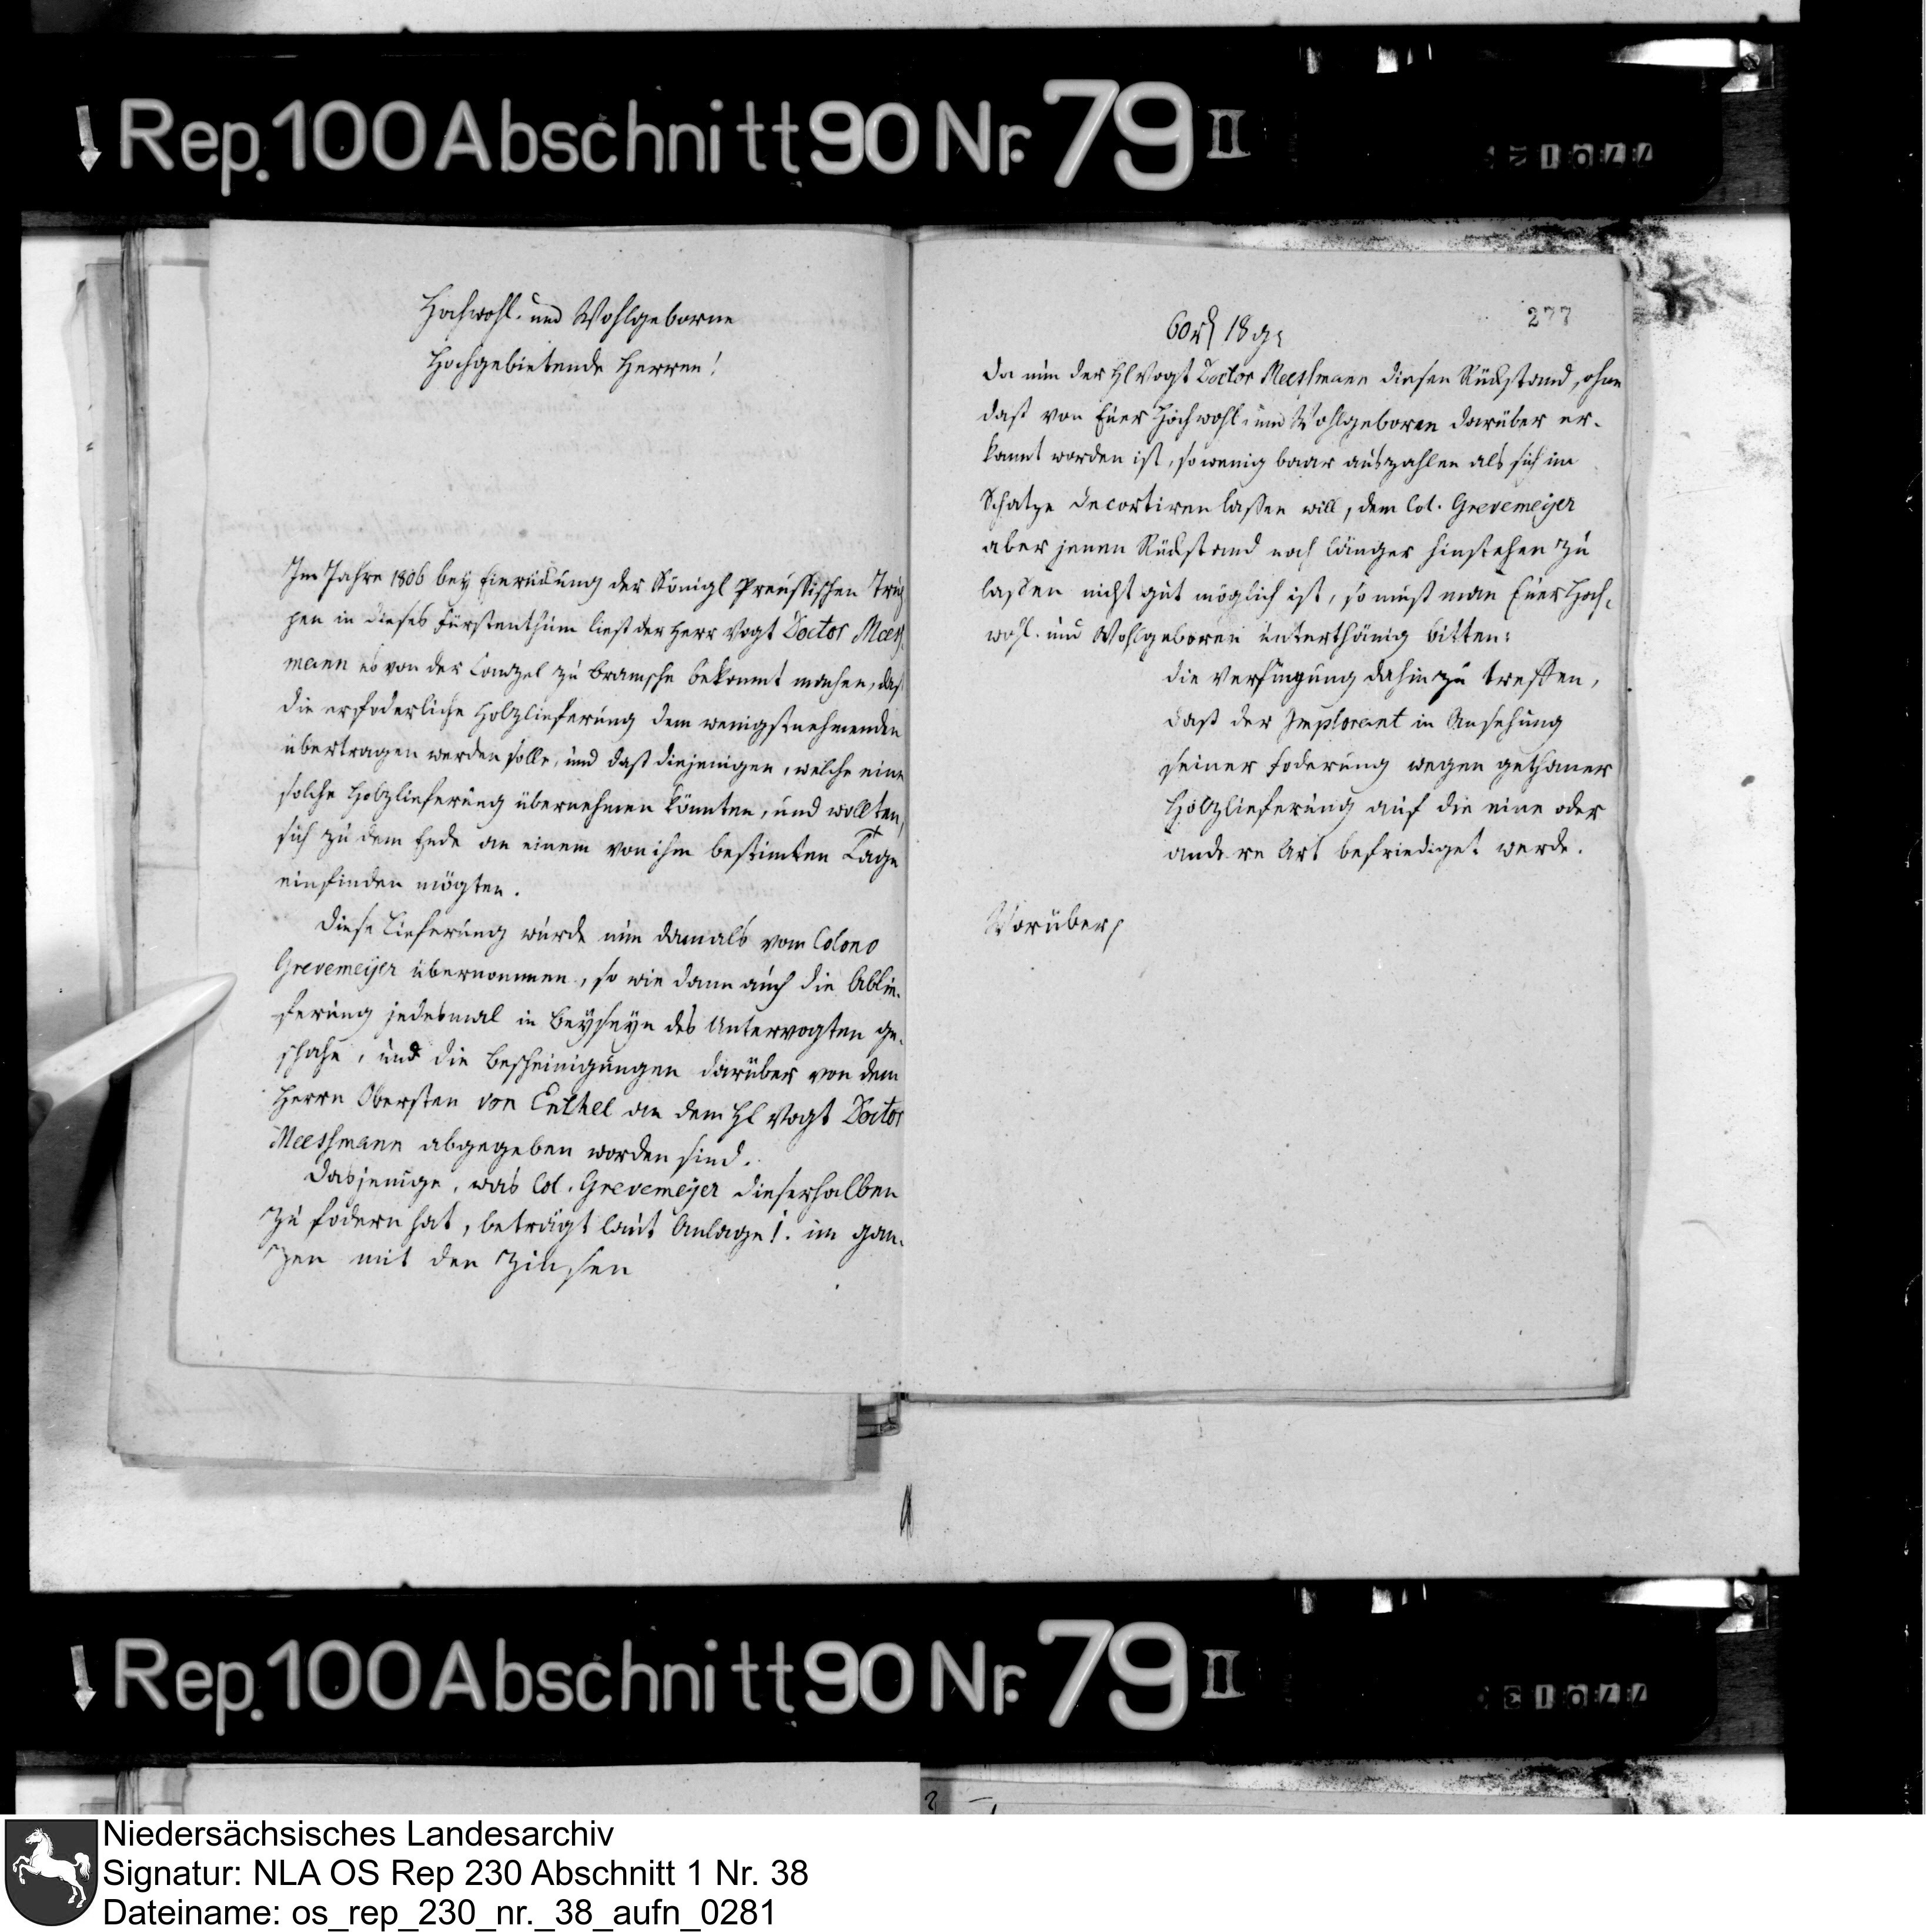 Rep. 100 Abschnitt 90 Nr. 79 II
Hochwohl- und Wohlgeborne
Hochgebietende Herren!
Im Jahre 1806 bey Einrückung der Königl Preussischen Trup
pen in dieses Fürstenthum liess der Herr Vogt Doctor Meess,
mann es von der Canzel zu Bramsche bekannt machen, dass
die erfoderliche Holzlieferung dem wenigstnehmenden
übertragen werden solle, und dass diejenigen, welche eine
solche Holzlieferung übernehmen könnten, und wollten,
sich zu dem Ende an einem von ihm bestimten Tage
einfinden mögten.
Diese Lieferung wurde nun damals vom Colono
Grevemeyer übernommen, so wie dann auch die Ablie-
ferung jedesmal in Beyseyn des Untervogten ge-
schahe, und die Bescheinigungen darüber von dem
Herrn Obersten von an dem Hl Vogt Doctor
Meessmann abgegeben worden sind.
Dasjenige, was Col. Grevemeyer dieserhalben
zu fodern hat, beträgt laut Anlage 1. im gan-
zen mit den Zinsen
277
60 rl 18 gr
Da nun der Hl Vogt Doctor Meessmann diesen Rückstand, ohne
dass von Euer Hochwohl- und Wohlgeboren darüber er-
kannt worden ist, so wenig baar auszahlen als sich im
Schatze decortiren lassen will, dem Col. Grevemeyer
aber jenen Rückstand noch länger hinstehen zu
lassen nicht gut möglich ist, so muss man Euer Hoch-
wohl- und Wohlgeboren unterthänig bitten:
die Verfügung dahin zu treffen,
dass der Implorant in Ansehung
seiner Foderung wegen gethaner
Holzlieferung auf die eine oder
andere Art befriediget werde.
Worüber,
Rep. 100 Abschnitt 90 Nr. 79 II
Niedersächsisches Landesarchiv
Signatur: NLA OS Rep 230 Abschnitt 1 Nr. 38
Dateiname: os_rep_230_nr._38_aufn_0281